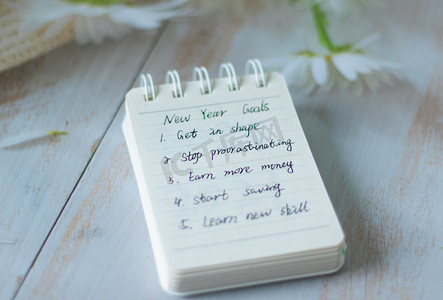 New Year Goals
1. Get in shape
2. Stop procrastinating
3. Earn more money
4. Start saving
5. Learn new skill